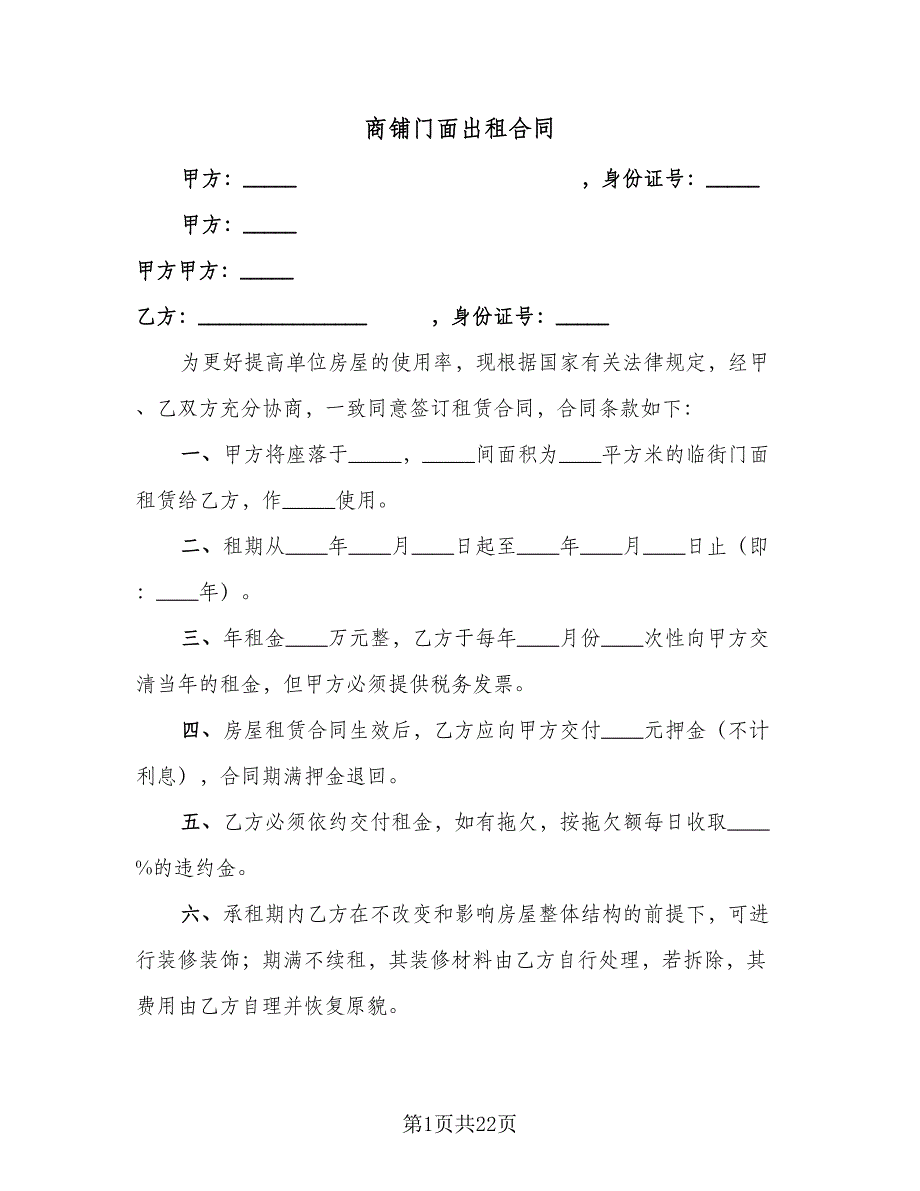 商铺门面出租合同
甲方：_____ ，身份证号：_____
甲方：_____
甲方甲方：_____
乙方：________________ ，身份证号：_____
为更好提高单位房屋的使用率，现根据国家有关法律规定，经甲
、乙双方充分协商，一致同意签订租赁合同，合同条款如下：
一、甲方将座落于_____，_____间面积为____平方米的临街门面
租赁给乙方，作_____使用。
二、租期从____年____月____日起至____年____月____日止（即
：____年）。
三、年租金____万元整，乙方于每年____月份____次性向甲方交
清当年的租金，但甲方必须提供税务发票。
四、房屋租赁合同生效后，乙方应向甲方交付____元押金（不计
利息），合同期满押金退回。
五、乙方必须依约交付租金，如有拖欠，按拖欠额每日收取____
%的违约金。
六、承租期内乙方在不改变和影响房屋整体结构的前提下，可进
行装修装饰；期满不续租，其装修材料由乙方自行处理，若拆除，其
费用由乙方自理并恢复原貌。
第1页共22页